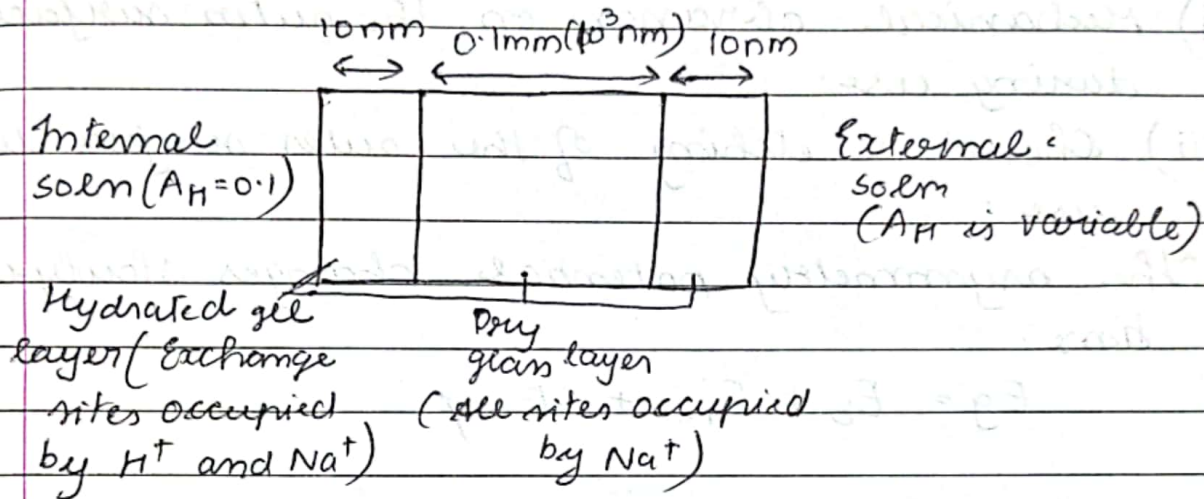 10nm 0.1mm(10³nm) 10nm
Internal
soln (A_H=0.1)
External
soln
(A_H is variable)
Hydrated gel
layer (Exchange
sites occupied
by H⁺ and Na⁺)
Dry
glass layer
(All sites occupied
by Na⁺)